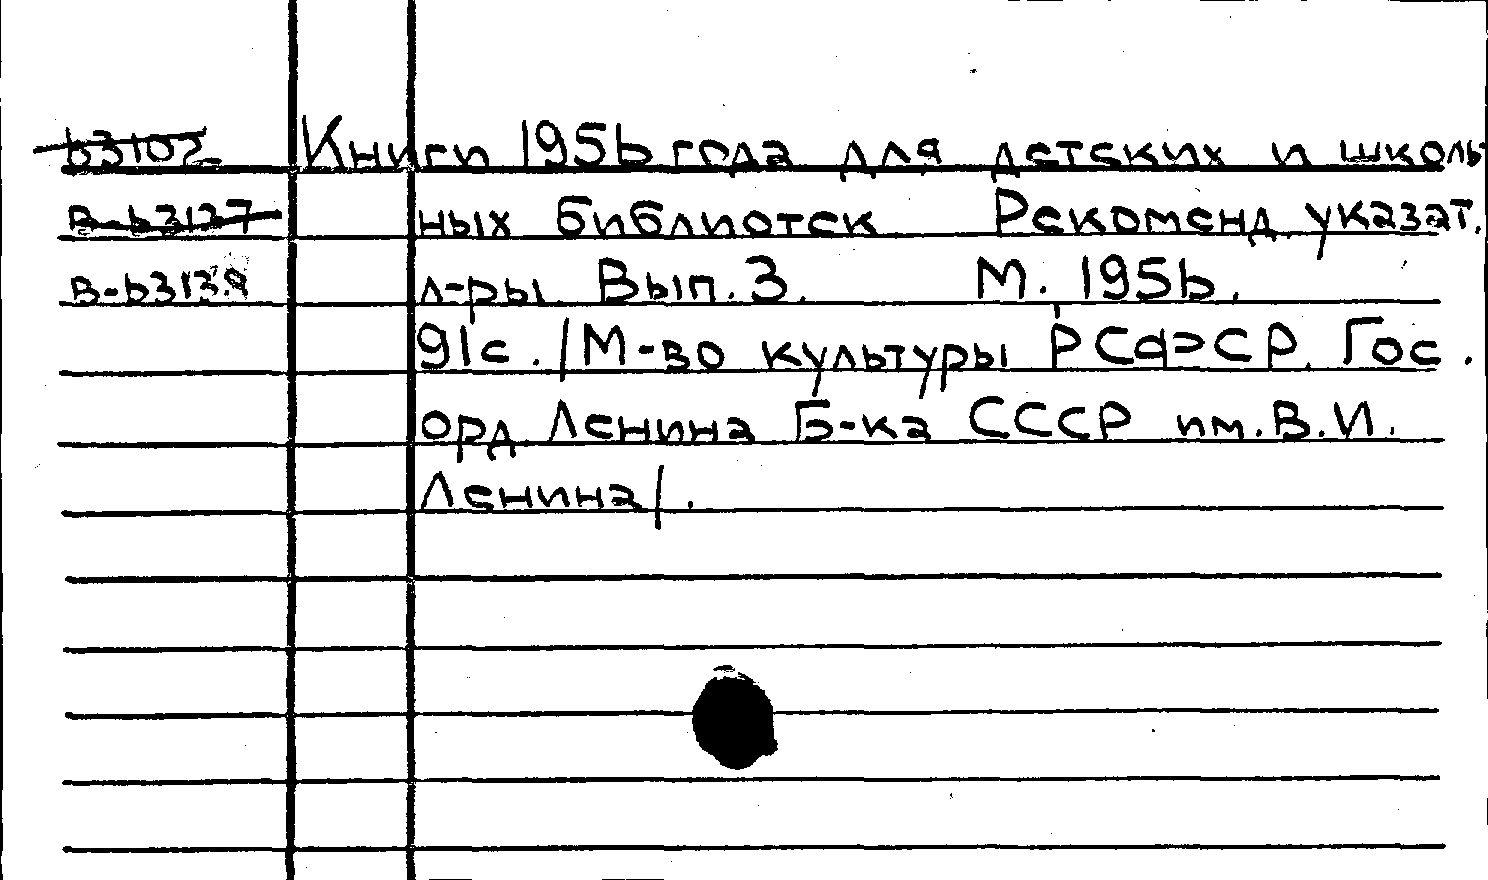 63102 Книги 1956 года для детских и школь-
В-63137 ных библиотек Рекоменд. указат.
В-63139 л-ры. Вып. 3. М. 1956.
91с. /М-во культуры РСФСР. Гос.
орд. Ленина Б-ка СССР им. В.И.
Ленина/.